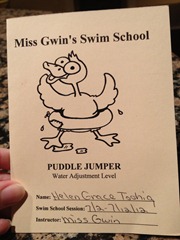 Miss Gwin's Swim School
PUDDLE JUMPER
Water Adjustment Level
Name: Helen Grace
Swim School Session:
Instructor: Miss Gwin